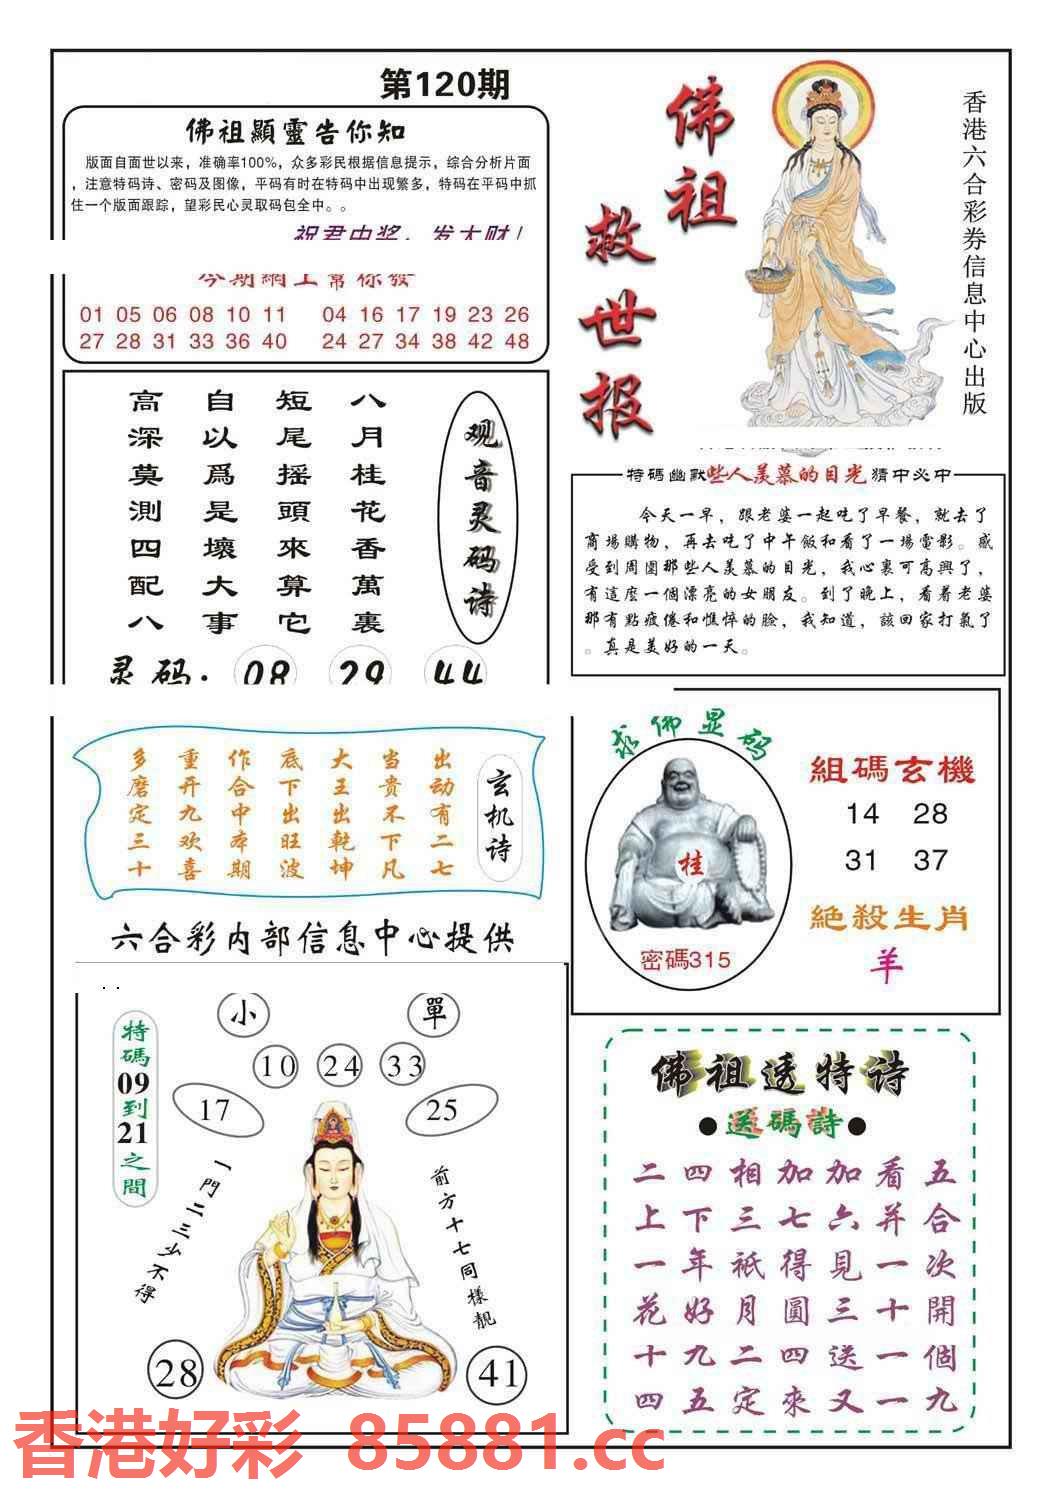 第120期
佛祖顯靈告你知
版面自面世以来，准确率100%，众多彩民根据信息提示，综合分析片面
，注意特码诗、密码及图像，平码有时在特码中出现繁多，特码在平码中抓
住一个版面跟踪，望彩民心灵取码包全中。。
祝君中奖，发大财！
今期網上幫你發
01 05 06 08 10 11 04 16 17 19 23 26
27 28 31 33 36 40 24 27 34 38 42 48
佛祖
救世报
香港六合彩券信息中心出版
观音灵码诗
八月桂花香萬裏
短尾摇頭來算它
自以爲是壞大事
高深莫測四配八
灵码：08 29 44
特码幽默些人羡慕的目光猜中必中
今天一早，跟老婆一起吃了早餐，就去了
商場購物，再去吃了中午飯和看了一場電影。感
受到周圍那些人羡慕的目光，我心裏可高興了，
有這麼一個漂亮的女朋友。到了晚上，看着老婆
那有點疲倦和憔悴的臉，我知道，該回家打氣了
。真是美好的一天。
玄机诗
出动有二七
当贵不下凡
大王出乾坤
底下出旺波
作合中本期
重开九欢喜
多磨定三十
六合彩内部信息中心提供
求佛显码
桂
密碼315
組碼玄機
14 28
31 37
絕殺生肖
羊
特碼09到21之間
小
單
10 24 33
17
25
一門二三少不得
前方十七同樣靚
28
41
佛祖透特诗
●送碼詩●
二四相加加看五
上下三七六并合
一年祇得見一次
花好月圓三十開
十九二四送一個
四五定來又一九
香港好彩 85881.cc